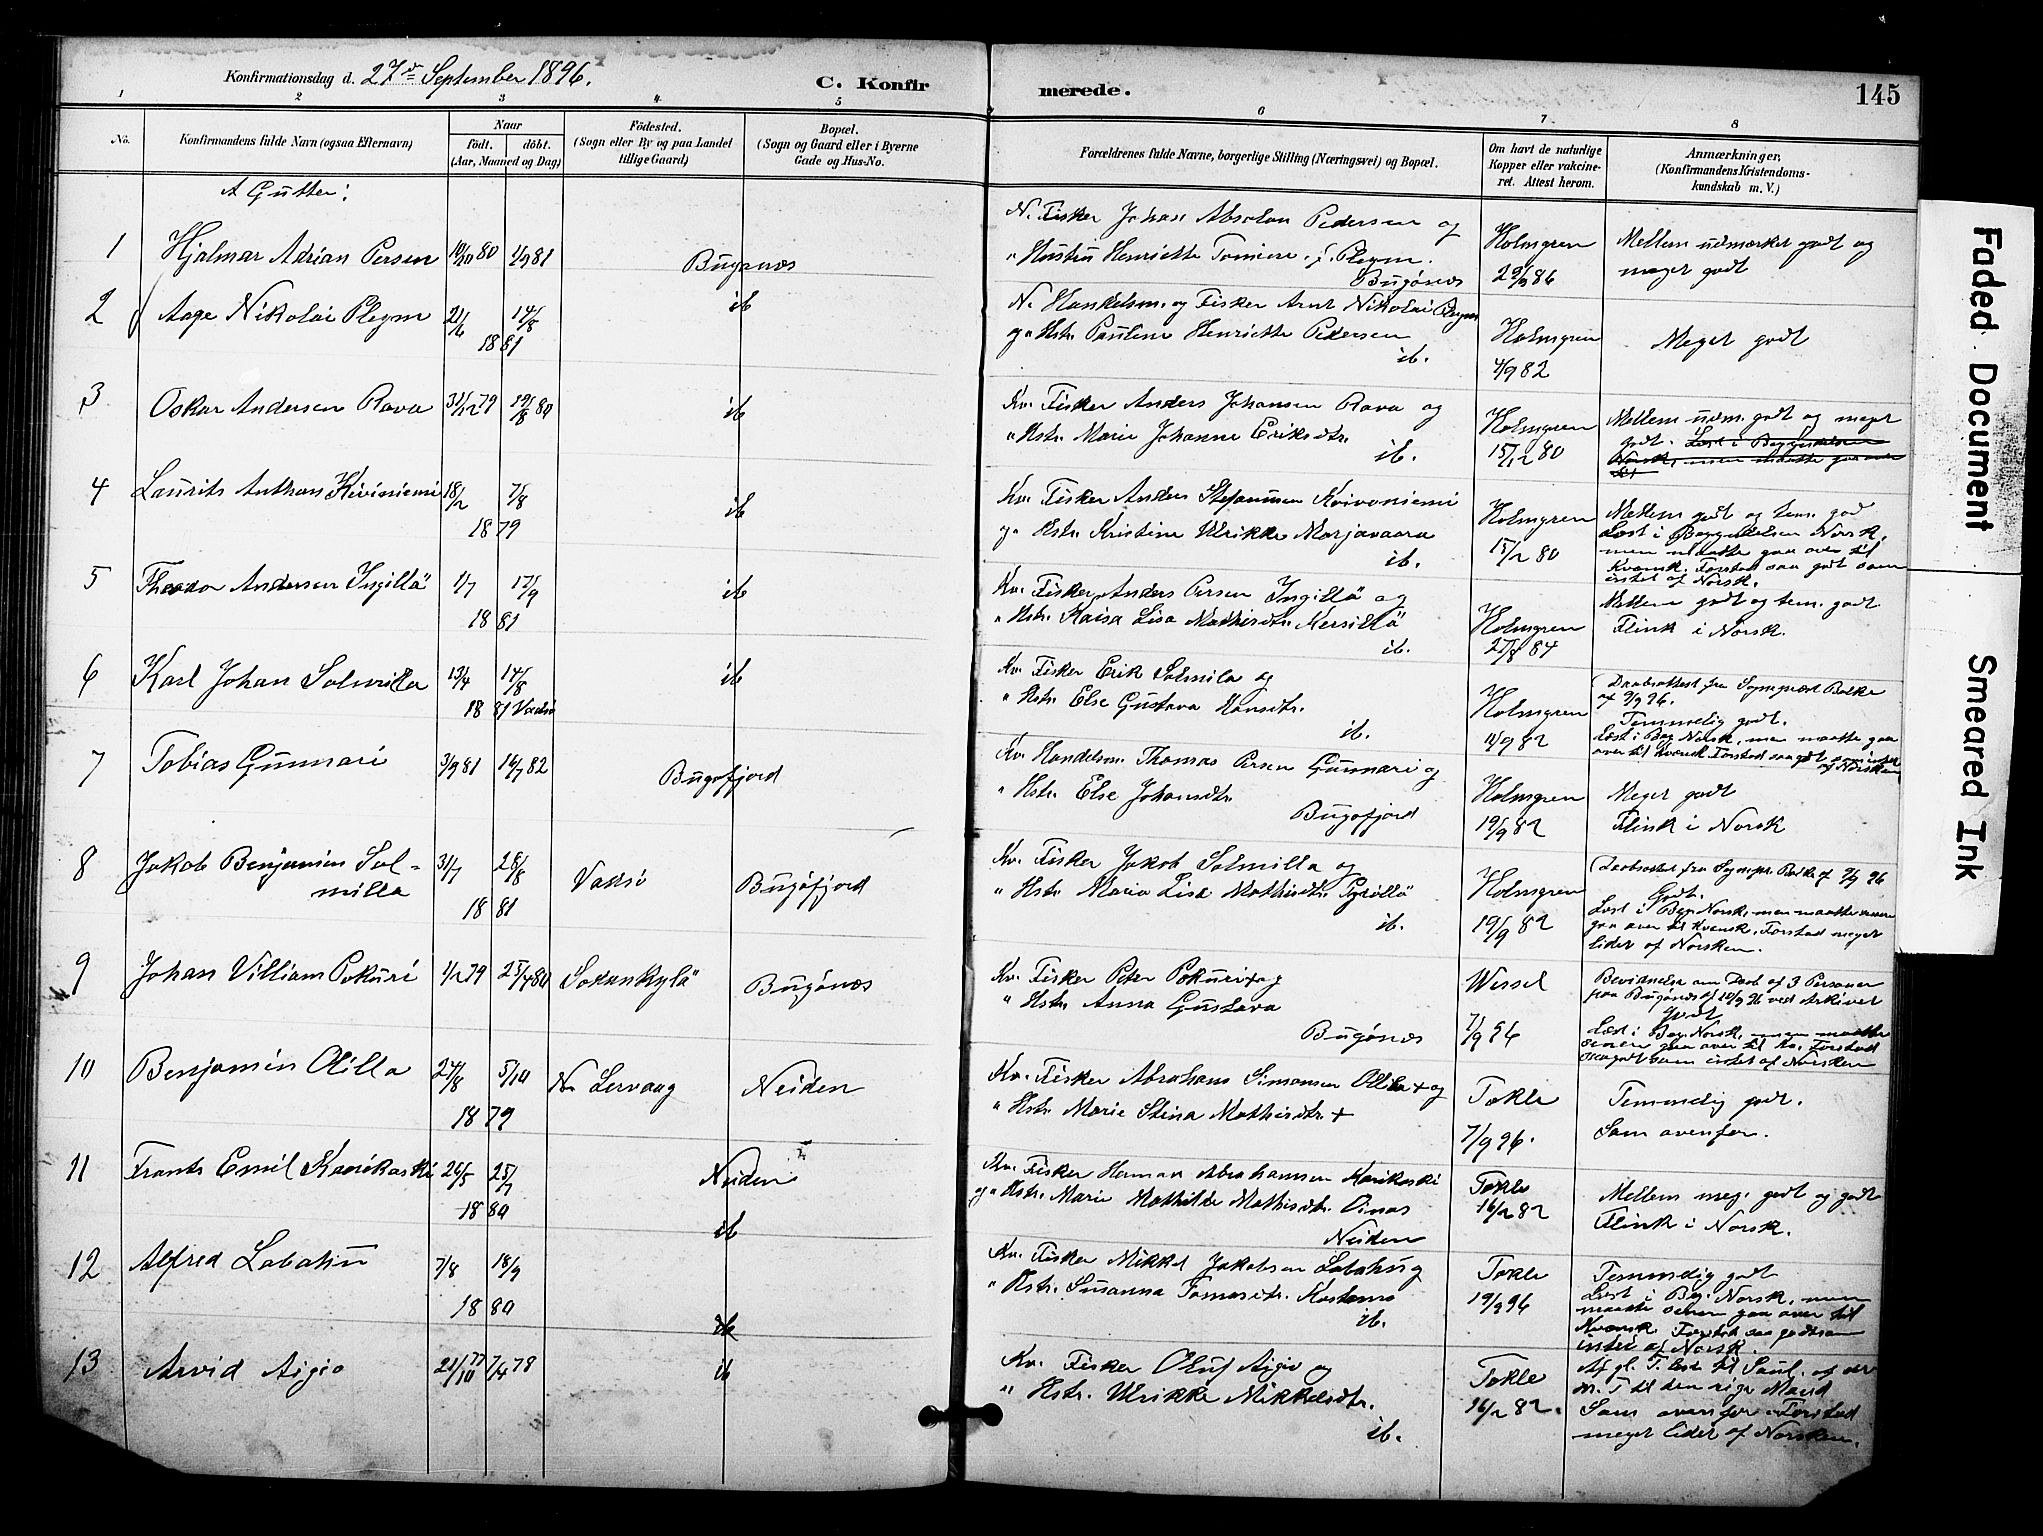 Konfirmationsdag d. 27de September 1896.
C. Konfirmerede.
145
1 2 3 4 5 6 7 8
No.
Konfirmandens fulde Navn (ogsaa Efternavn)
Naar
födt. döbt.
(Aar, Maaned og Dag)
Födested.
(Sogn eller By og paa Landet
tillige Gaard)
Bopæl.
(Sogn og Gaard eller i Byerne
Gade og Hus-No.
Forældrenes fulde Navne, borgerlige Stilling (Næringsvei) og Bopæl.
Om havt de naturlige
Kopper eller vakcine-
ret. Attest herom.
Anmærkninger.
(Konfirmandens Kristendoms-
kundskab m. V.)
A Gutter:
1 Hjalmar Adrian Persen
Bugønæs
N. Fisker Johan Absolon Pedersen og
" Hustru Henriette Tomine f. Pleym.
Bugönæs
Holmgren
29/9 86
Mellem udmærket godt og
meget godt
2 Aage Nikolai Pleym 21/6 14/8
1881
ib
N. Handelsm. og Fisker Arnt Nikolai Pleym
og Hstr. Pauline Henriette Pedersen
ib.
Holmgren
4/9 82
Meget godt
3 Oskar Andersen Rova 31/12 79 19/8 80
ib
Kv. Fisker Anders Johansen Rova og
" Hstr. Marie Johanne Eriksdtr.
ib.
Holmgren
15/12 80
Mellem udm. godt og meget
godt. Læst i Begyndelsen
Norsk, men maatte gaa over
til
4 Laurits Anthon Kiviniemi 18/2 7/8
1879
ib
Kv. Fisker Anders Stefanussen Kivoniemi
og Hstr. Kristine Ulrikke Marjavaara
ib.
Holmgren
15/12 80
Mellem godt og tem. god
Læst i Begyndelsen Norsk,
men maatte gaa over til
Kvænsk. Forstod saa godt som
intet af Norsk.
5 Theodor Andersen Ingillä 1/7 17/9
1881
ib
Kv. Fisker Anders Persen Ingillä og
" Hstr. Kaisa Lisa Mathisdtr. Mersillä
ib.
Holmgren
27/8 84
Mellem godt og tem. godt
Flink i Norsk.
6 Karl Johan Solmilla 13/4 14/8
1881 Vadsø
ib
Kv. Fisker Erik Solmila og
" Hstr. Else Gustava Hansdtr.
ib.
Holmgren
11/9 82
(Daabsattest fra Sognepræst Balke
af 9/9 96.
Temmelig godt.
Læst i Beg. Norsk, men maatte gaa
over til Kvænsk. Forstod saa godt som intet
af Norsken
7 Tobias Gunnari 3/9 81 16/7 82
Bugøfjord
Kv. Handelsm. Thomas Persen Gunnari og
" Hstr. Else Johansdtr.
Bugøfjord
Holmgren
19/9 82
Meget godt
Flink i Norsk
8 Jakob Benjamin Sol-
milla 31/7 28/8
1881
Vadsö
Bugöfjord
Kv. Fisker Jakob Solmilla og
" Hstr. Maria Lisa Mathisdtr. Pyrillä
ib.
Holmgren
19/9 82
(Daabsattest fra Sognepr. Balke af 9/9 96
Godt.
Læst i Beg. Norsk, men maatte senere
gaa over til Kvænsk. Forstod meget
lidet af Norsken.
9 Johan Villiam Pokuri 1/12 79 25/4 80
Sodankylä
Bugönæs
Kv. Fisker Peter Pokuri + og
" Hstr. Anna Gustava
Bugönæs
Wessel
7/9 96
Bevidnelse om Daab af 3 Personer
paa Bugönæs af 10/9 96 ved Arkivet
Godt
Læst i Beg. Norsk, men maatte
senere gaa over til Kv. Forstod
saagodt som intet af Norsken
10 Benjamin Ollila 24/8 5/10
1879
N. Lervaag
Neiden
Kv. Fisker Abraham Simonsen Ollila + og
" Hstr. Marie Stina Mathisdtr. +
Tokle
7/9 96.
Temmelig godt.
Som ovenfor.
11 Frants Emil Karikoski 26/5 25/7
1880
Neiden
Kv. Fisker Herman Abrahamsen Karikoski
og " Hstr. Marie Mathilde Mathisdtr. Oinas
Neiden
Tokle
16/2 82
Mellem meg. godt og godt
Flink i Norsk.
12 Alfred Labahu 7/8 18/9
1880
ib
Kv. Fisker Mikkel Jakobsen Labahu og
" Hstr. Susanna Tomasdtr. Kostamo
ib.
Tokle
19/9 96
Temmelig godt
Læst i Beg. Norsk, men
maatte senere gaa over til
Kvænsk. Forstod saa godt som
intet af Norsk.
13 Arvid Aigio 21/10 77 7/4 78
ib
ib
Kv. Fisker Oluf Aigio og
" Hstr. Ulrikke Mikkelsdtr.
ib.
Tokle
16/2 82.
Af gl. T. læst til Saul. af det
n. T til den rige Mand
Som ovenfor. Forstod
meget lidet af Norsken.
Faded Document
Smeared Ink